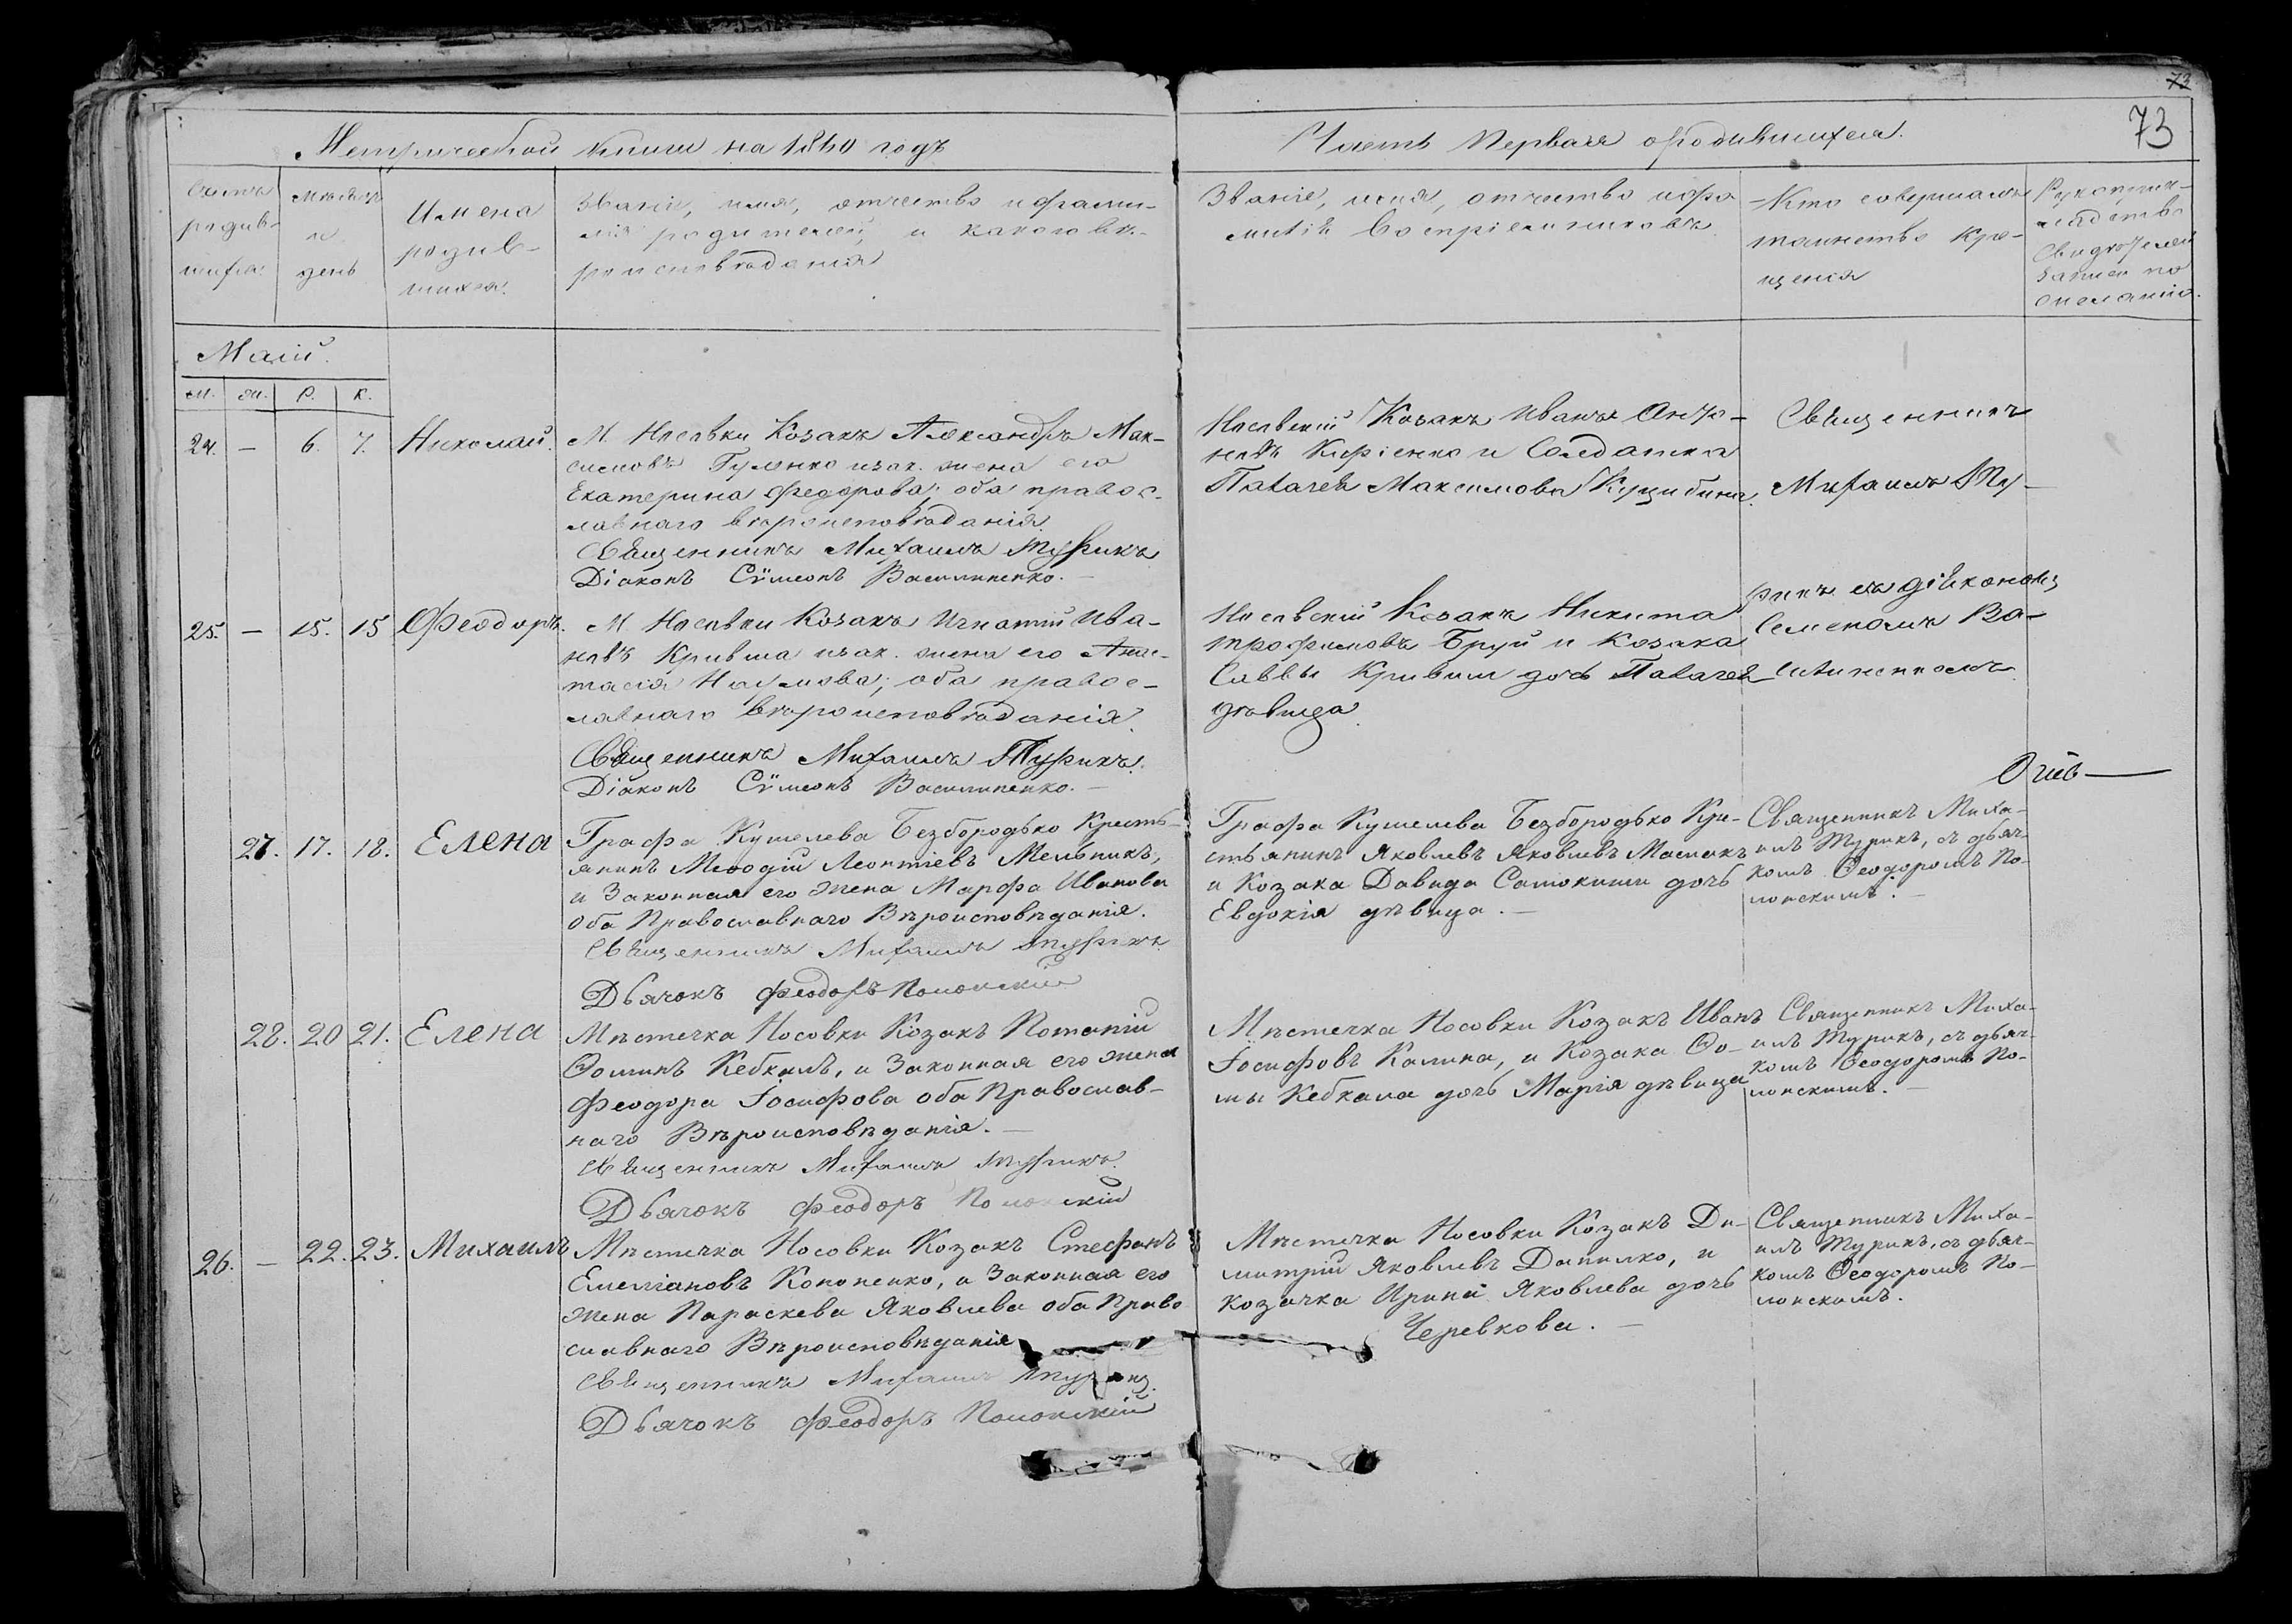 73
73
Метрической книги на 1860 годъ
Часть Первая о родившихся.
Счетъ родив-
шихся
мѣсяцъ
и
день
Имена
родив-
шихся.
Званіе, имя, отчество и фами-
лія родителей, и какого вѣ-
роисповѣданія
Званіе, имя, отчество и фа
милія Воспріемниковъ
Кто совершалъ
таинство кре-
щенія
Рукоприк-
ладство
свидѣтелей
записи по
желанію.
Маій.
м. ж. р. к.
24. — 6. 7. Николай.
М. Носовки Козакъ Александръ Мак-
симовъ Гуленко изак. жена его
Екатерина Федорова; оба правос-
лавнаго вѣроисповѣданія.
Священникъ Михаилъ Турикъ
Діаконъ Сѵмеонъ Василиненко.
Носовскій Козакъ Иванъ
Киріенко и Солдатка
Пелагея Максимова
Священникъ
Михаилъ Ту-
рикъ съ діакономъ
Семеномъ Ва-
силиненкомъ
25. — 15. 15 Феодоръ.
М Носовки Козакъ Игнатій Ива-
новъ Кривша изак. жена его Анас-
тасія Наумова; оба правос-
лавнаго вѣроисповѣданія.
Священникъ Михаилъ Турикъ.
Діаконъ Сѵмеонъ Василиненко.
Носовскій Козакъ Никита
Трофимовъ Бруй и Козака
Саввы Кривши дочь Пелагея
дѣвица
27. 17. 18. Елена
Графа Кушелева Безбородько Кресть-
янинъ Меѳодій Леонтіевъ Мельникъ,
и Законная его жена Марфа Иванова
Оба Православнаго Вѣроисповѣданія.
Священникъ Михаилъ Турикъ
Дьячокъ Феодоръ Полонскій
Графа Кушелева Безбородько Кре-
стьянинъ Яковлевъ Яковлевъ
и Козака Давида Самокиши дочь
Евдокія дѣвица.
Священникъ Миха-
илъ Турикъ, съ дьяч-
комъ Ѳеодоромъ По-
лонскимъ.
28. 20 21. Елена
Мѣстечка Носовки Козакъ Потапій
Ѳоминъ Кебкалъ, и Законная его жена
Феодора Іосифова оба Православ-
наго Вѣроисповѣданія.
Священникъ Михаилъ Турикъ.
Дьячокъ Феодоръ Полонскій
Мѣстечка Носовки Козакъ Иванъ
Іосифовъ Калина, и Козака Ѳо-
мы Кебкала дочь Марія дѣвица
Священникъ Миха-
илъ Турикъ, съ дьяч-
комъ Ѳеодоромъ По-
лонскимъ.
26. — 22. 23. Михаилъ
Мѣстечка Носовки Козакъ Стефанъ
Емеліановъ Кононенко, и Законная его
жена Параскева Яковлева оба Право
славнаго Вѣроисповѣданія
Священникъ Михаилъ Турикъ.
Дьячокъ Феодоръ Полонскій
Мѣстечка Носовки Козакъ Ди-
митрій Яковлевъ Данилко, и
козачка Ирина Яковлева дочь
Черевкова.
Священникъ Миха-
илъ Турикъ, съ дьяч-
комъ Ѳеодоромъ По-
лонскимъ.